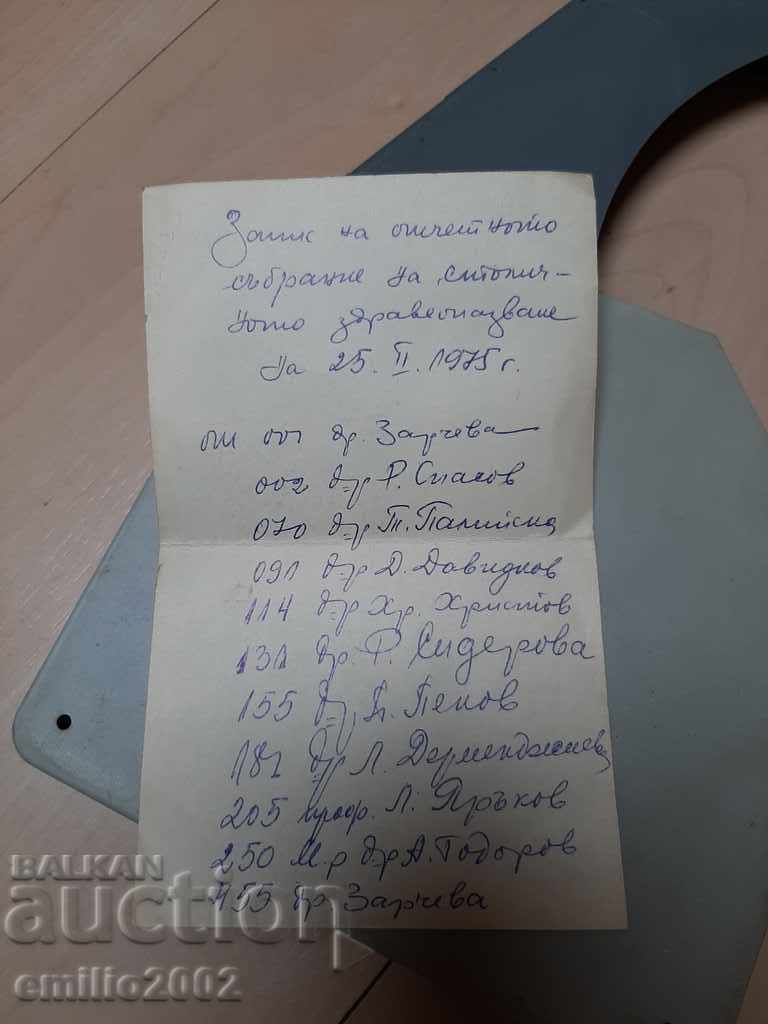 Запис на отчетното
събрание на „столич-
ното здравеопазване
на 25. II. 1975 г.
от 001 др. Зарчева
002 д-р Р. Спасов
070 д-р Т.
091 д-р Д. Давидков
114 д-р Хр. Христов
131 др. Р. Сидерова
155 д-р Пенов
182 д-р Л. Дерменджиева
205 проф. Л. Яръков
250 М-р д-р А. Тодоров
455 др Зарчева
BALKAN
auction
emilio2002